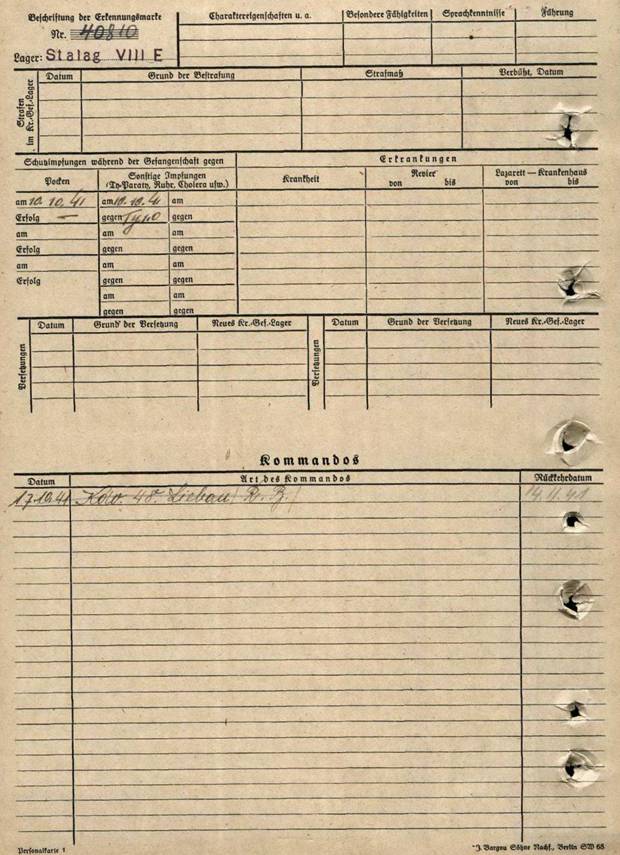 Beschriftung der Erkennungsmarke
Nr. 40810
Lager: Stalag VIII E
Charaktereigenschaften u. a.
Besondere Fähigkeiten
Sprachkenntnisse
Führung
Strafen im Kr.-Gef.-Lager
Datum
Grund der Bestrafung
Strafmaß
Verbüßt, Datum
Schutzimpfungen während der Gefangenschaft gegen
Erkrankungen
Pocken
Sonstige Impfungen
(Ty-Paraty, Ruhr, Cholera usw.)
Krankheit
Revier
von bis
Lazarett — Krankenhaus
von bis
am 10.10.41 am 10.10.41 am
Erfolg — gegen Typo gegen
am am am
Erfolg gegen gegen
am am am
Erfolg gegen gegen
am am
gegen gegen
Versetzungen
Datum
Grund der Versetzung
Neues Kr.-Gef.-Lager
Versetzungen
Datum
Grund der Versetzung
Neues Kr.-Gef.-Lager
Kommandos
Datum
Art des Kommandos
Rückkehrdatum
17.10.41 Kdo. 48. Liebau (R. B.) 14.11.41
Personalkarte 1
J. Bargou Söhne Nachf., Berlin SW 68